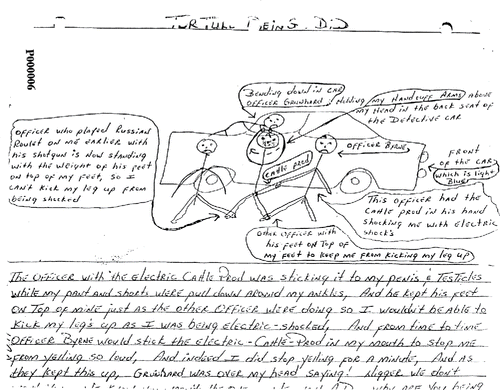 TORTURE BEING DID
P000006
BENDING DOWN IN CAR
OFFICER GRUNHARD: Holding my HANDCUFF ARMS above
my Head in the back seat of
the Detective car
OFFICER WHO played Russian
Roulet on me earlier with
his shotgun is now standing
with the weight of his feet
on top of my feet, so I
can't kick my leg up from
being shocked
Cattle prod
OFFICER BYRNE
FRONT
OF the CAR,
which is light
Blue
This OFFICER had the
Cattle prod in his hand
shocking me with electric
shocks
Other OFFICER with
his feet on Top of
my feet to keep me from kicking my leg up
The OFFICER with the Electric Cattle Prod was sticking it to my penis & Testicles
while my pant and shorts were pull down around my ankles, And he kept his feet
on Top of mine just as the other Officer were doing so I wouldn't be able to
kick my leg's up as I was being electric-shocked, And from time to time
Officer Byrne would stick the electric-Cattle-Prod in my mouth to stop me
from yelling so loud, And indeed I did stop yelling for a minute, And as
they kept this up, Grunhard was over my head saying! Nigger we don't